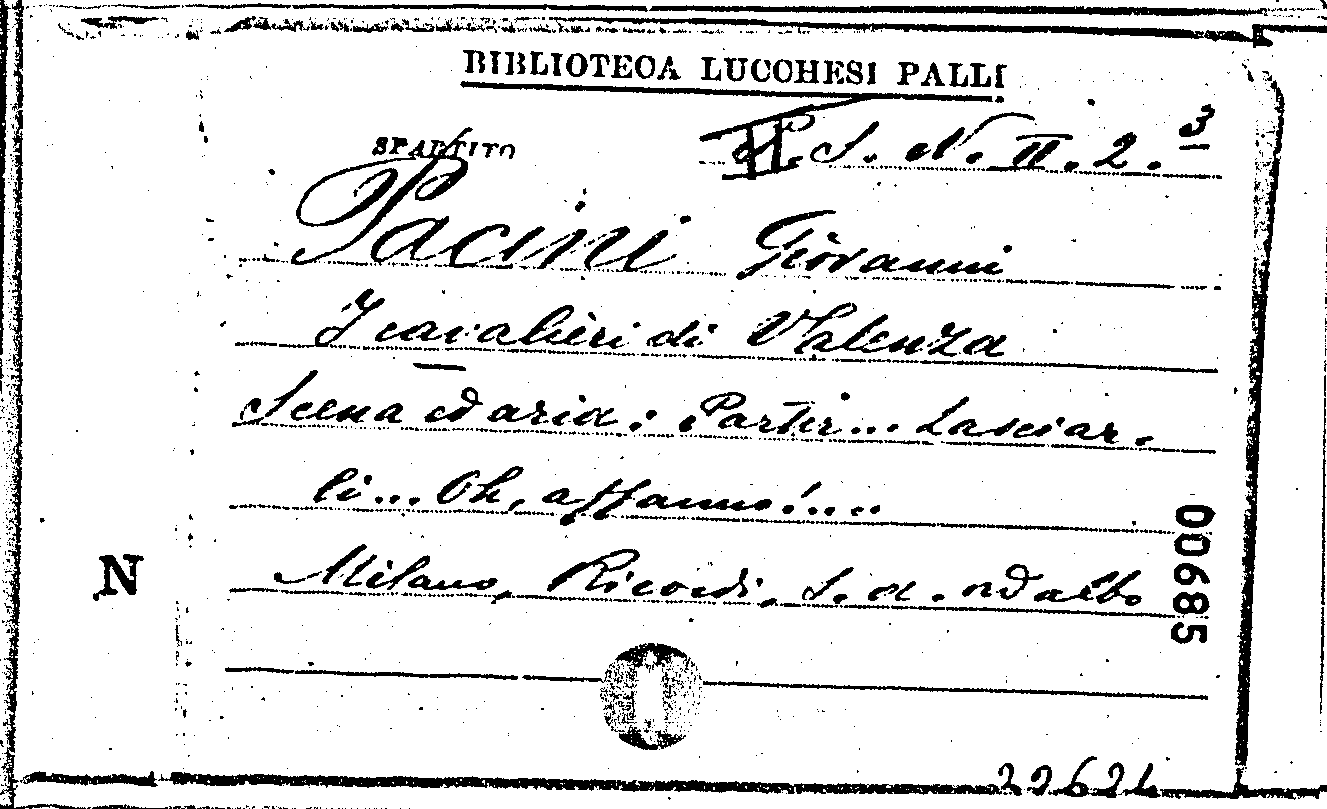 BIBLIOTECA LUCCHESI PALLI
SPARTITO
S. N. II. 2. 3
Pacini Giovanni
I cavalieri di Valenza
Scena ed aria: Partir... Lasciar-
li... Oh, affanno!....
Milano, Ricordi, s. d. ed albo
00685
N
22624